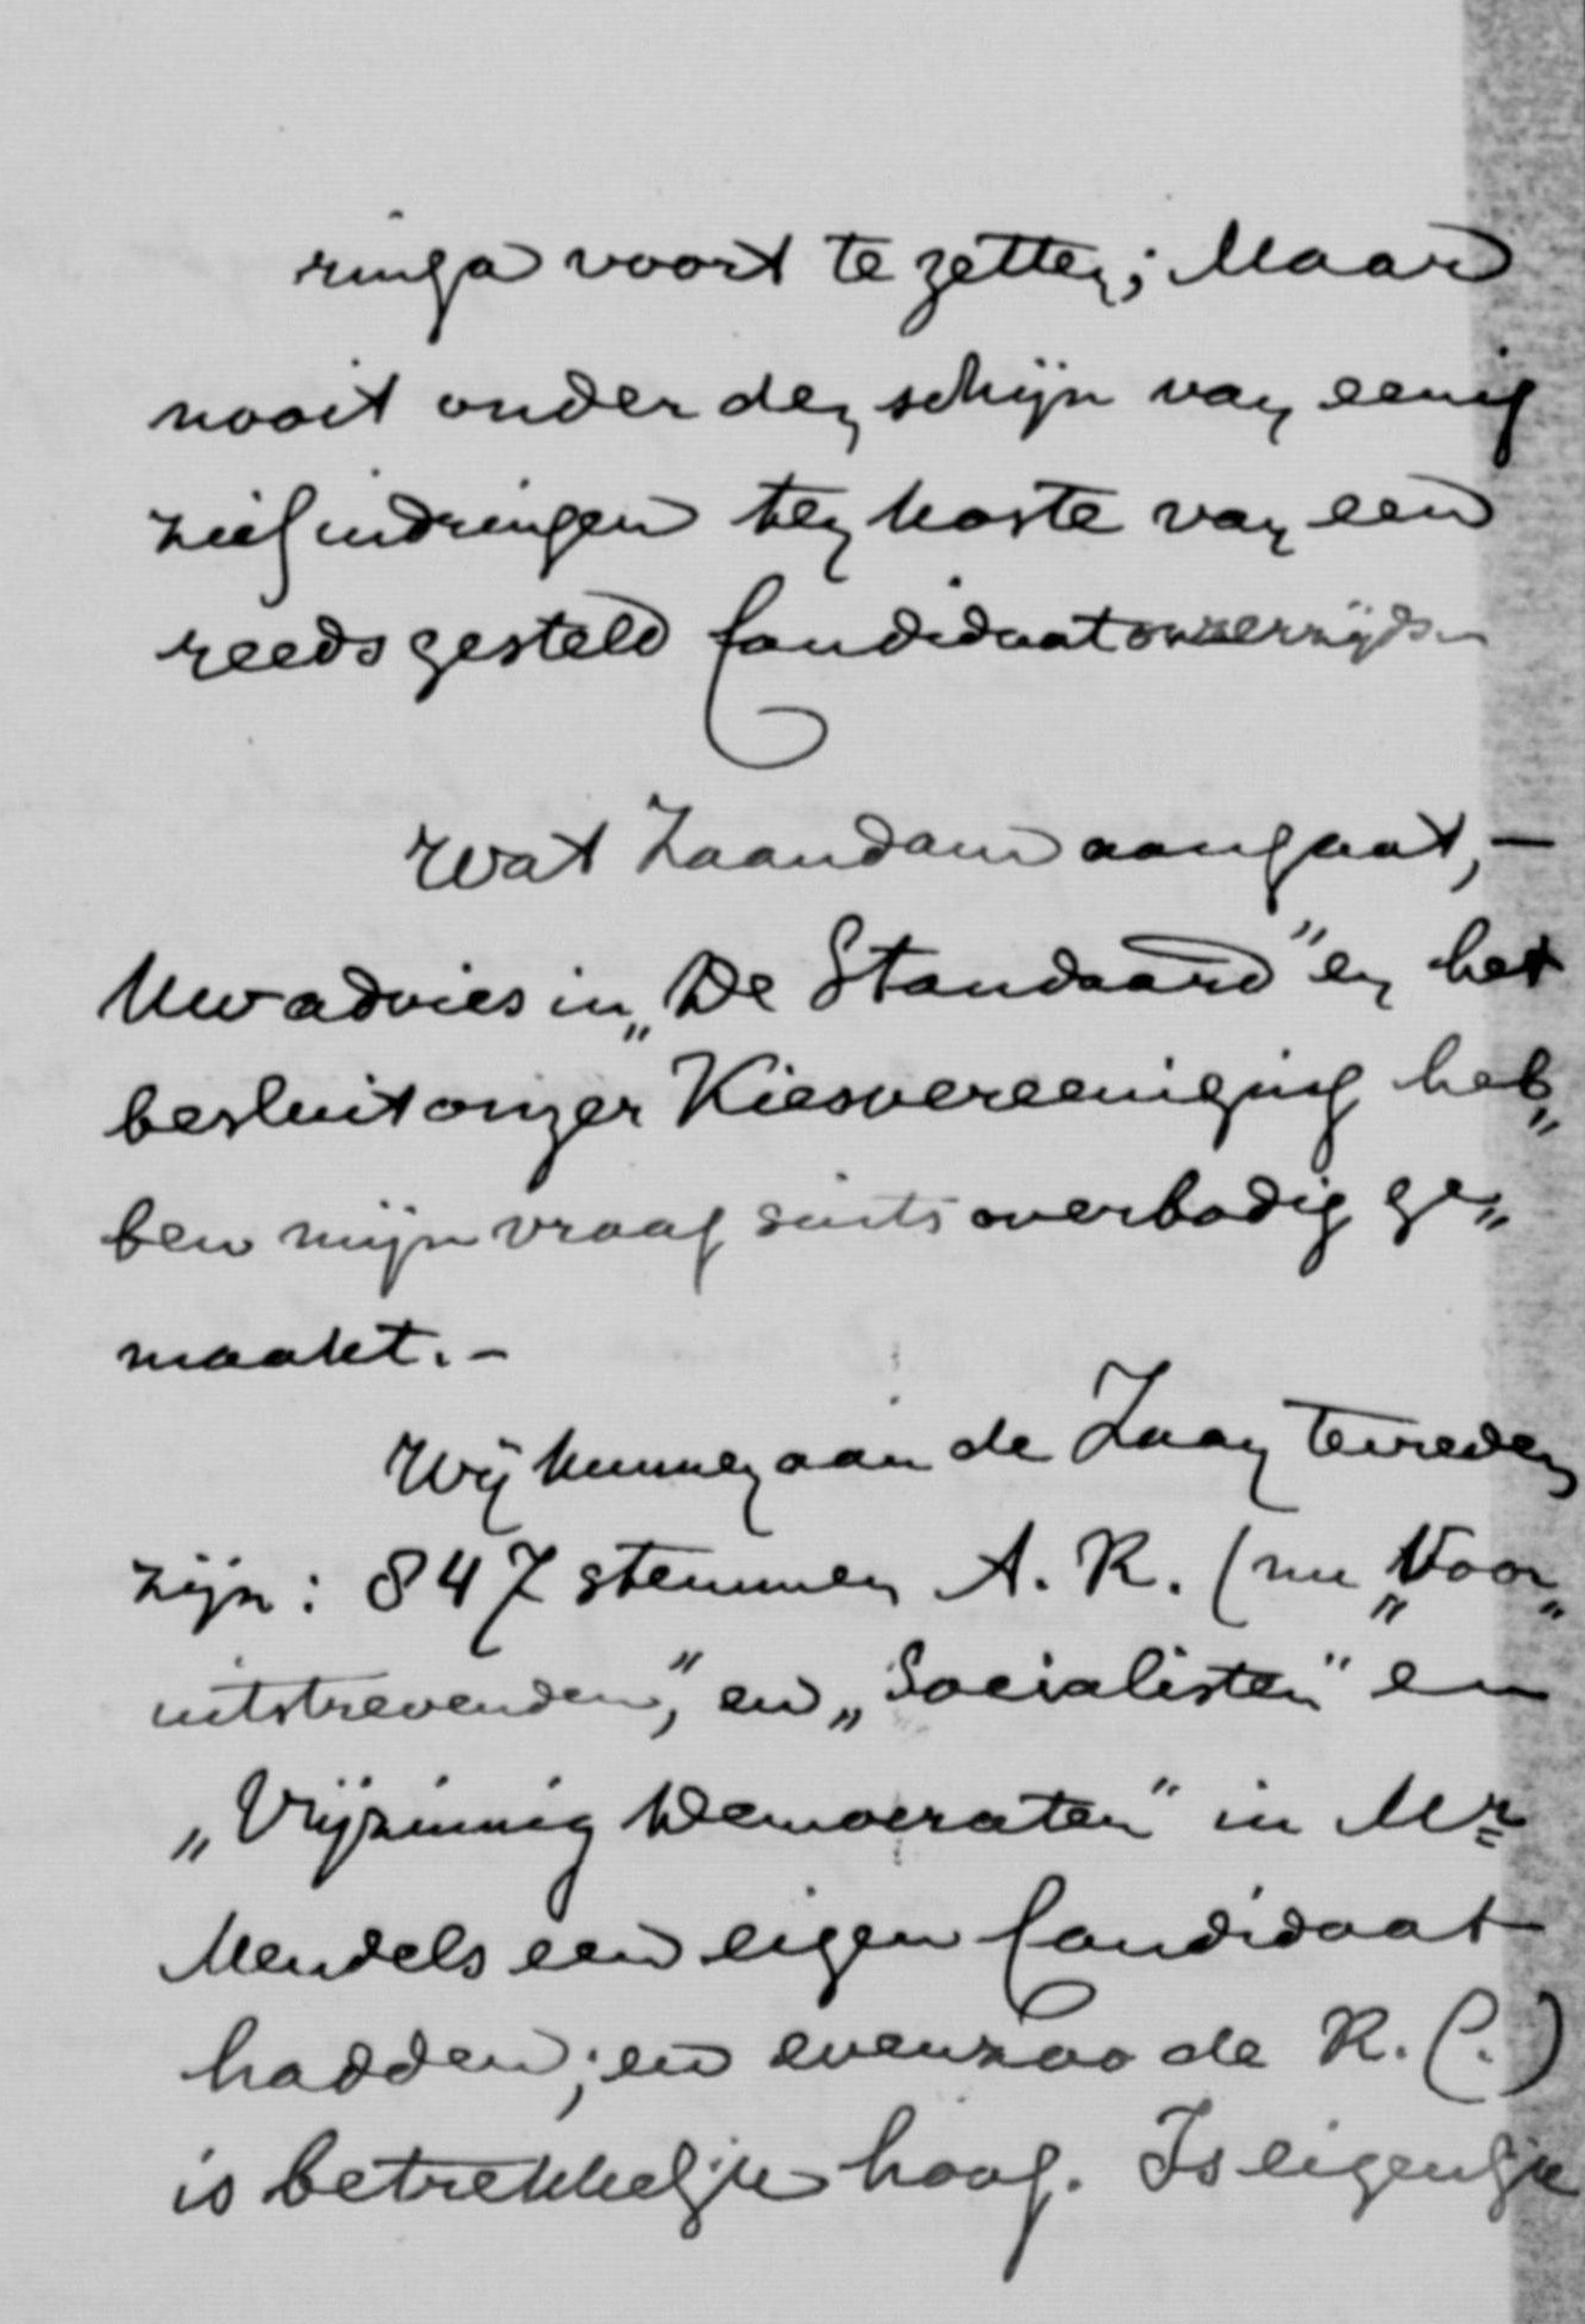 ringa voort te zetten; Maar
nooit onder den schijn van eenig
zich indringen ten koste van een
reeds gesteld Candidaat onzerzijds
Wat Zaandam aangaat, –
Uw advies in „De Standaard" en het
besluit onzer Kiesvereeniging heb„
ben mijn vraag sints overbodig ge„
maakt. –
Wij kunnen aan de Zaan tevreden
zijn: 847 stemmen A. R. (nu „Voor„
uitstrevenden", en „Socialisten" en
„Vrijzinnig Democraten" in Mr
Mendels een eigen Candidaat
hadden; en evenzoo de R. C.)
is betrekkelijk hoog. Is eigenlijk